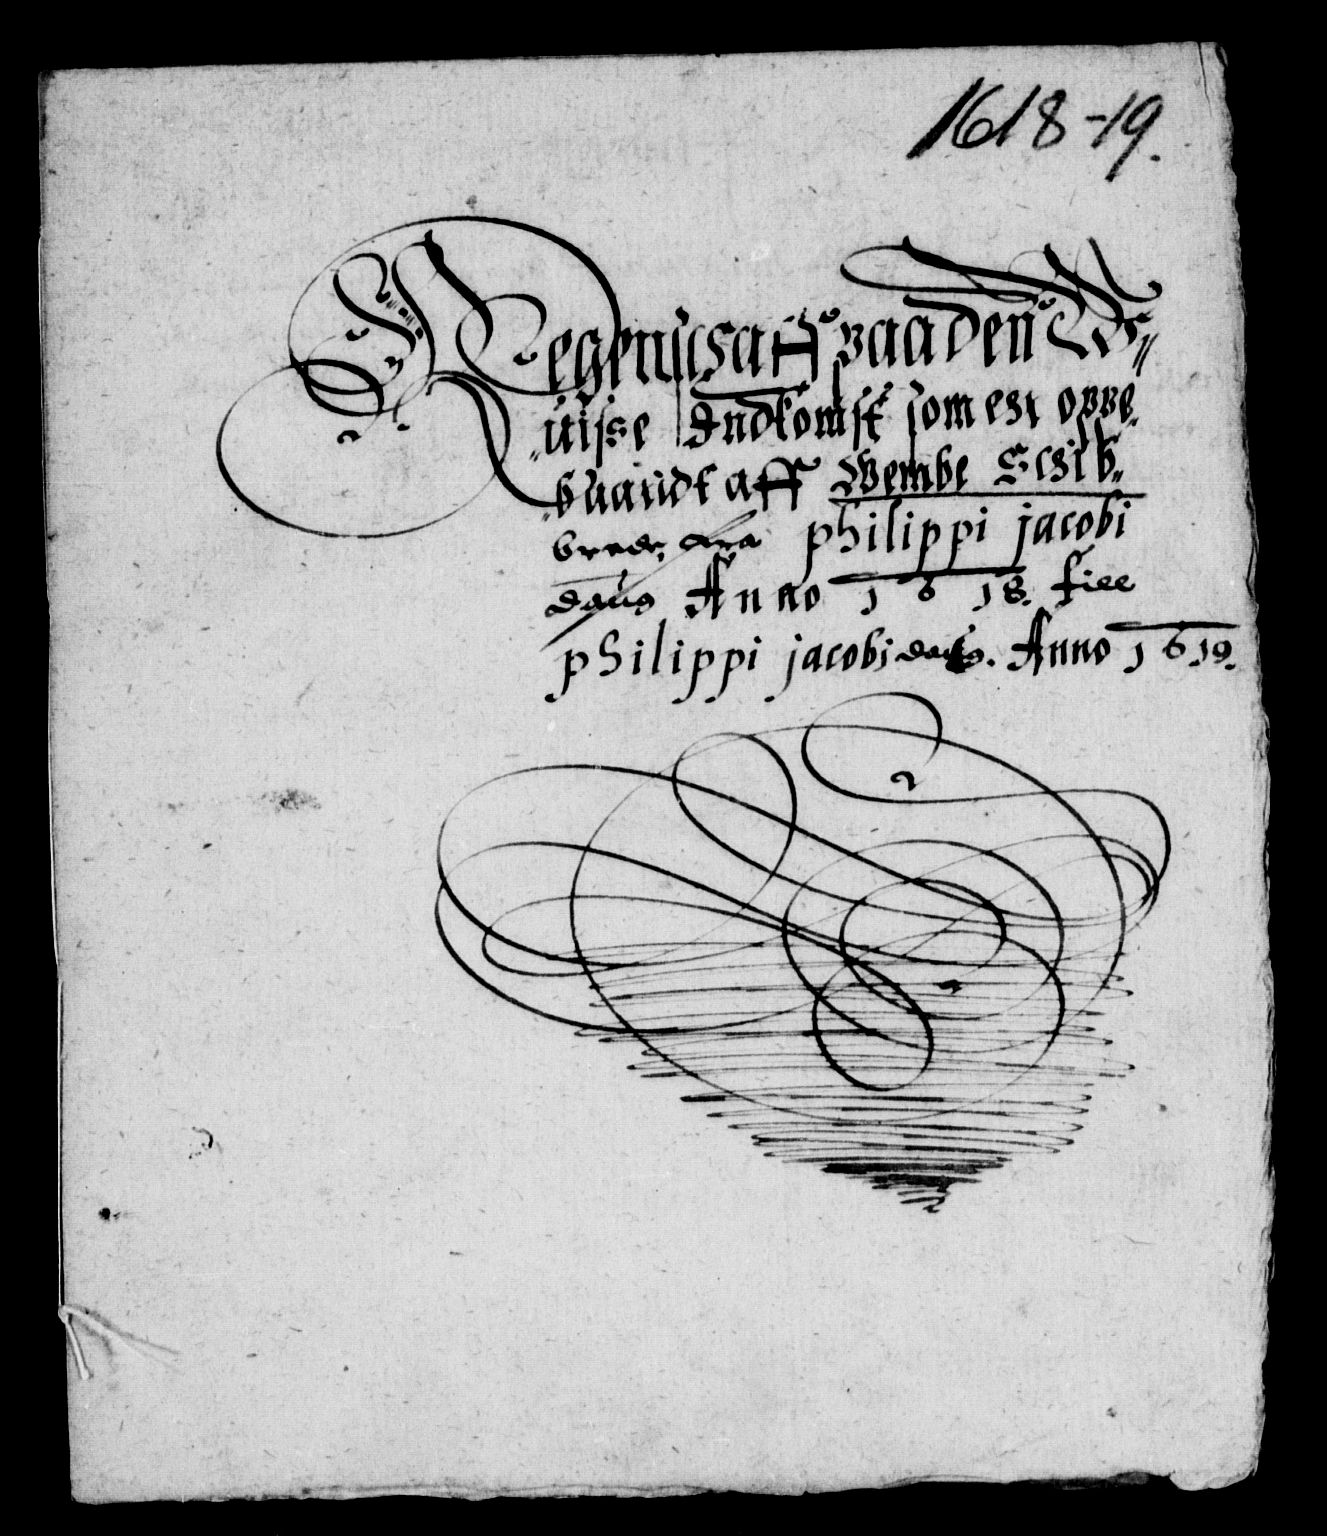 1618-19.
Regennscaff paa den V//
uisse Indkomst som er oppe
baaridt aff Vembe Schib„
brede fra philippi jacobi
daug Anno 1618. till
philippi jacobi daug. Anno 1619.